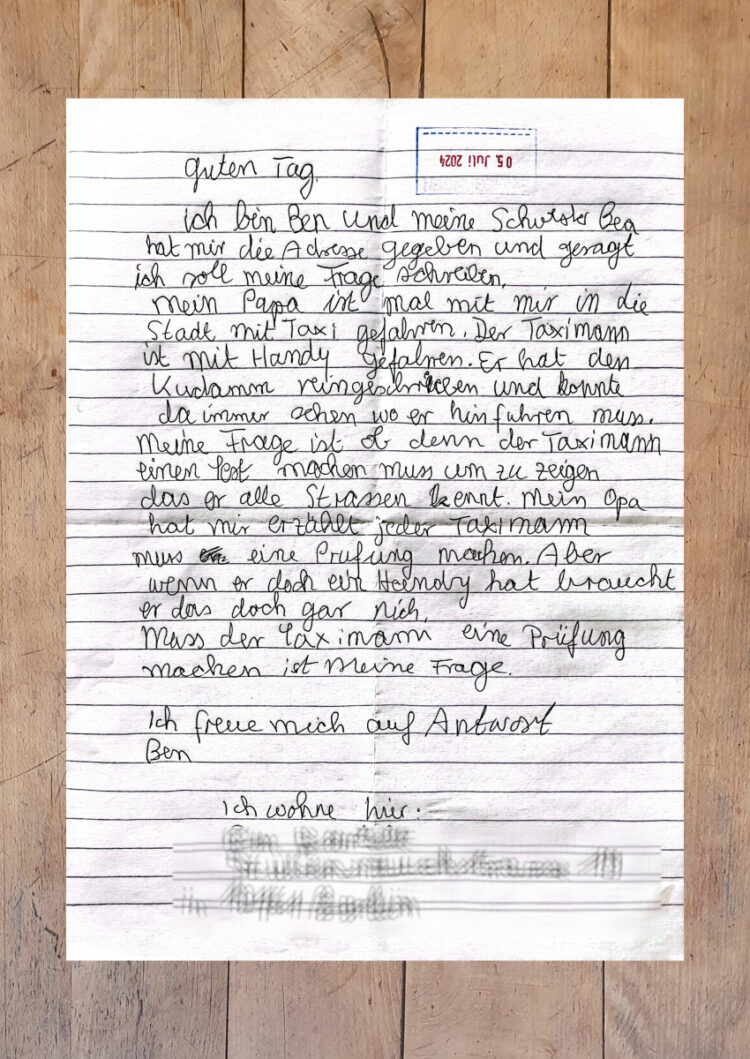 05. Juli 2024
Guten Tag.
ich bin Ben und meine Schwster Bea
hat mir die Adresse gegeben und gesagt
ich soll meine Frage schreiben,
mein Papa ist mal mit mir in die
Stadt mit Taxi gefahren. Der Taximann
ist mit Handy gefahren. Er hat den
Kudamm reingeschrieben und konnte
da immer sehen wo er hinfuhren muss.
Meine Frage ist ob denn der Taximann
einen Test machen muss um zu zeigen
das er alle Strassen kennt. Mein Opa
hat mir erzählt jeder Taximann
muss eine Prufung machen. Aber
wenn er doch ein Handy hat braucht
er das doch gar nich,
Muss der Taximann eine Prüfung
machen ist meine Frage.
Ich freue mich auf Antwort
Ben
Ich wohne hier: